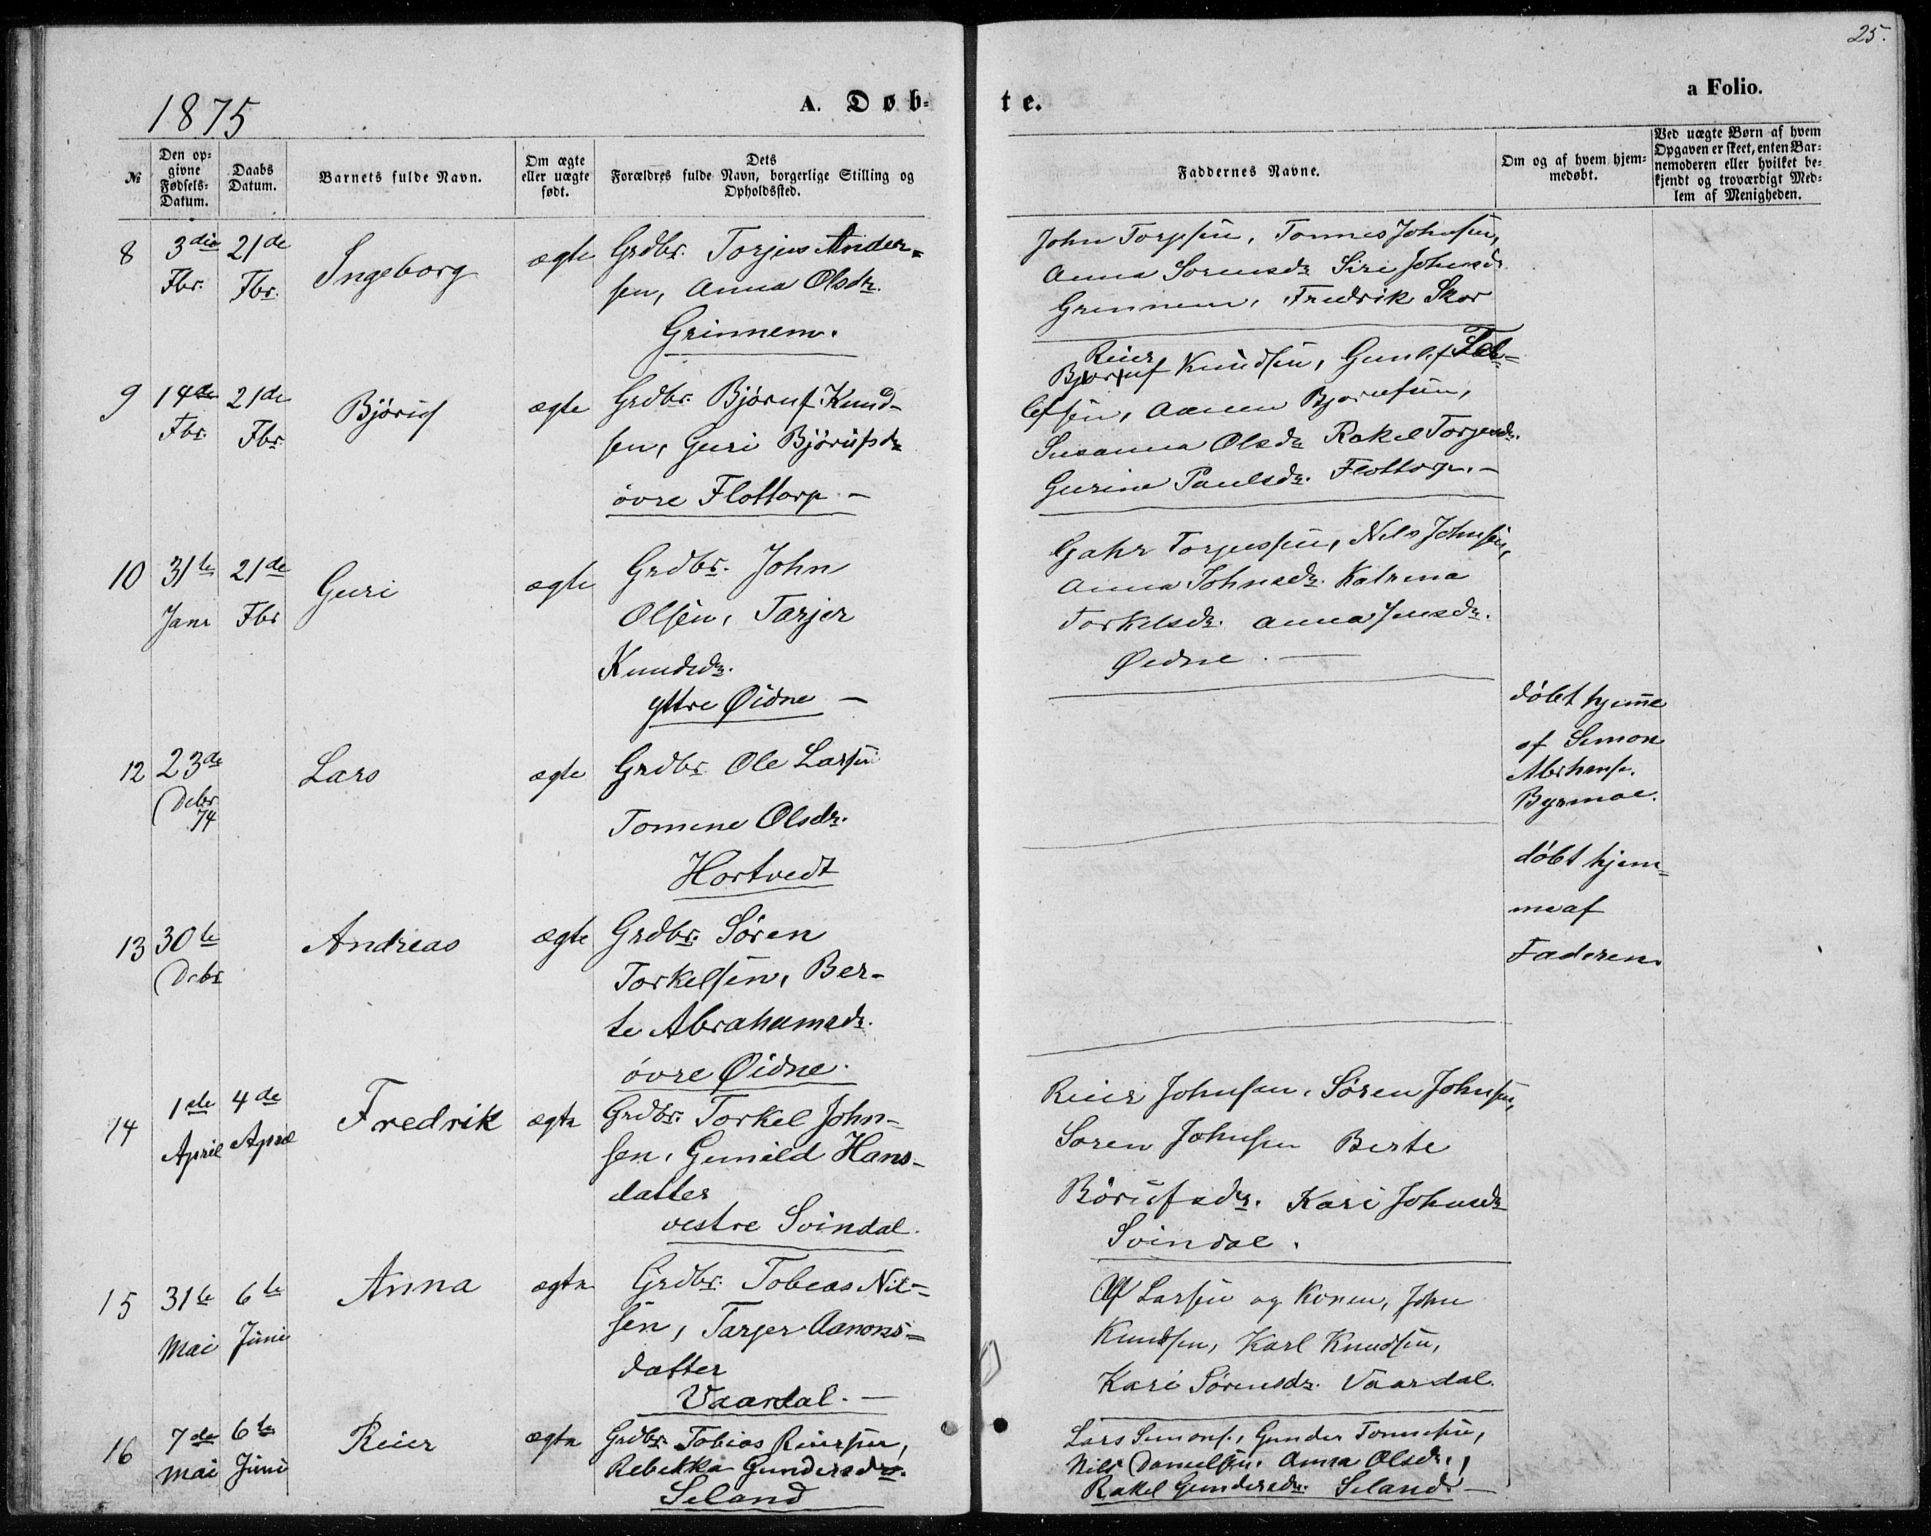 25.
1875
A. Døb-
te.
a Folio.
№
Den op-
givne
Fødsels-
Datum.
Daabs
Datum.
Barnets fulde Navn.
Om ægte
eller uægte
født.
Dets
Forældres fulde Navn, borgerlige Stilling og
Opholdssted.
Faddernes Navne.
Om og af hvem hjem-
medøbt.
Ved uægte Børn af hvem
Opgaven er skeet, enten Bar-
nemoderen eller hvilket be-
kjendt og troværdigt Med-
lem af Menigheden.
8
3die
Fbr.
21de
Fbr.
Ingeborg
ægte
Grdbr. Torjus Ander-
sen, Anna Olsdr.
Grinnem.
John Torjsen, Tønnes Johnsen,
Anna Sorensdr Siri Johnsdr
Grinnem, Fredrik Skor
9
14de
Fbr.
21de
Fbr
Bjøruf
ægte
Grdbr. Bjøruf Knud-
sen, Guri Bjørufsdr
øvre Flottorp –
Reier
Bjøruf Knudsen, Gunlf Tel-
lefsen, Aanen Bjorufsen,
Susanna Olsdr Rakel Torjesdr.
Gurine Paulsdr. Flottorp. –
10
31te
Janr
21de
Fbr
Guri
ægte
Grdbr. John
Olsen, Tarjer
Knudsdr.
yttre Øidne –
Gahr Torjussen, Nils Johnsen,
Anna Johnsdr. Katrina
Torkelsdr. Anna Jensdr.
Øidne. –
12
23de
Debr
74
Lars
ægte
Grdbr. Ole Larsen
Tomine Olsdr.
Hortvedt
døbt hjemme
af Simon
Abrhams.
Byrmoe.
13
30te
Debr
Andreas
ægte
Grdbr. Søren
Torkelsen, Ber-
te Abrahamsdr.
øvre Øidne.
døbt hjem-
me af
Faderen.
14
1ste
April
4de
April
Fredrik
ægte
Grdbr. Torkel John-
sen, Gunild Hans-
datter
vestre Svindal.
Reier Johnsen, Søren Johnsen,
Soren Johnsen Berte
Børufsdr. Kari Johnsdr
Svindal.
15
31te
Mai
6te
Juni
Anna
ægte
Grdbr. Tobias Nil-
sen, Tarjer Aanons-
datter
Vaardal. –
Ulf Larsen og Konen, John
Knudsen, Karl Knudsen,
Kari Sørensdr. Vaardal.
16
7de
Mai
6te
Juni
Reier
ægte
Grdbr. Tobias Reiersen,
Rebekka Gundersdr.
Seland
Lars Simons., Gunder Tønnesen,
Nils Danielsen. Anna Olsdr.,
Rakel Gundersdr. Seland –